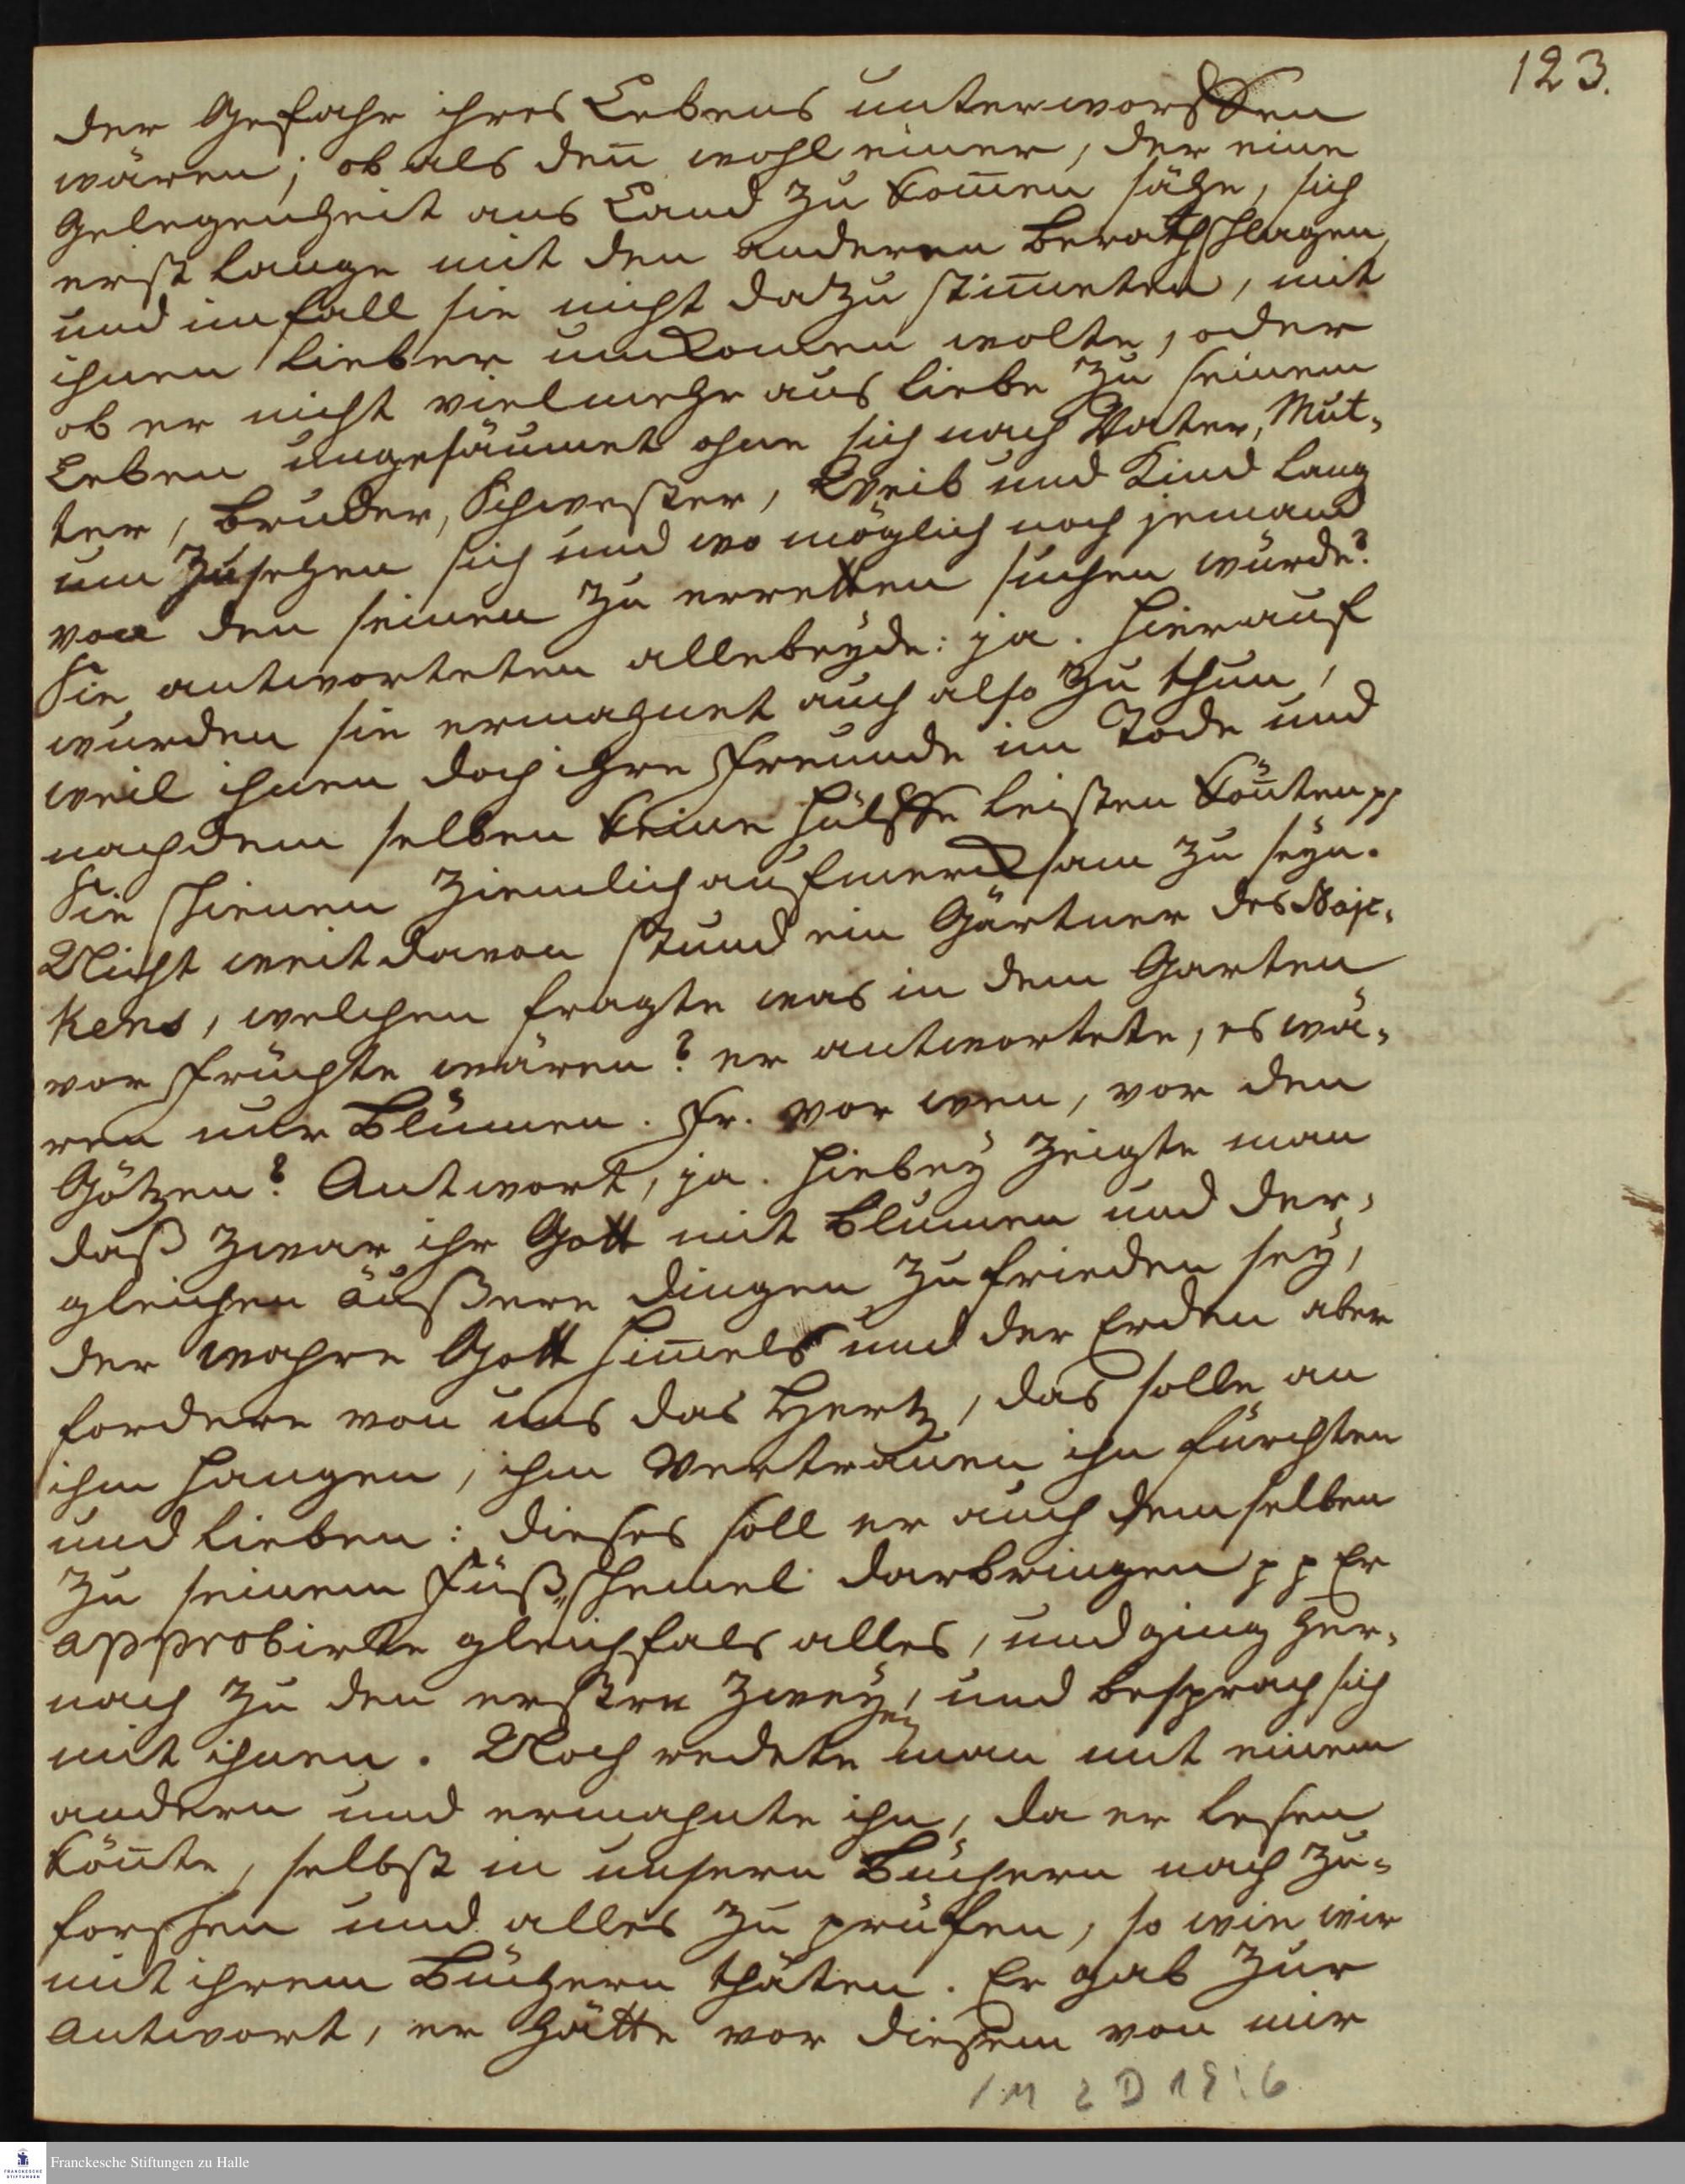 123.
der Gefahr ihres Lebens unterworffen
wären; ob als deñ wohl einer, der eine
Gelegenheit ans Land zu kom̃en sähe, sich
erst lange mit den anderen berathschlagen,
und im fall sie nicht dazu stim̃eten, mit
ihnen lieber umkomen wolte, oder
ob er nicht vielmehr aus liebe zu seinem
Leben ungesäumet ohne sich nach Vater, Mut-
ter, Bruder, Schwester, Weib und Kind lang
um zusehen sich und wo möglich noch jemand
von den seinen zu erretten suchen würde?
Sie antworteten allebeyde: ja. Hierauf
wurden sie ermahnet auch also zu thun,
weil ihnen doch ihre Freunde im Tode und
nach dem selben keine Hülffe leisten kön̄ten pp
Sie schienen ziemlich aufmercksam zu seyn.
Nicht weit davon stund ein Gärtner des
kens, welchen fragte was in dem Garten
vor Früchte wären? er antwortete, es wä-
ren nur Blumen. Fr. vor wen, vor den
Götzen? Antwort, ja. Hiebey zeigte man
daß zwar ihr Gott mit Blumen und der-
gleichen äußern dingen zufrieden sey,
der wahre Gott Him̃els und der Erden aber
fordere von uns das Hertz, das solle an
ihm hangen, ihm Vertrauen ihn fürchten
und lieben: dieses soll er auch demselben
zu seinem Fuß-schemel darbringen pp Er
approbirte gleichfals alles, und ging her-
nach zu den erstern zweyen, und besprach sich
mit ihnen. Noch redete man mit einem
andern und ermahnte ihn, da er lesen
kön̄te, selbst in unsern Büchern nach zu-
forschen und alles zu prüfen, so wie wir
mit ihrem Büchern thäten. Er gab zur
Antwort, er hätte vor diesem von mir
1 M 2 D 18:6
Franckesche Stiftungen zu Halle
FRANCKESCHE
STIFTUNGEN